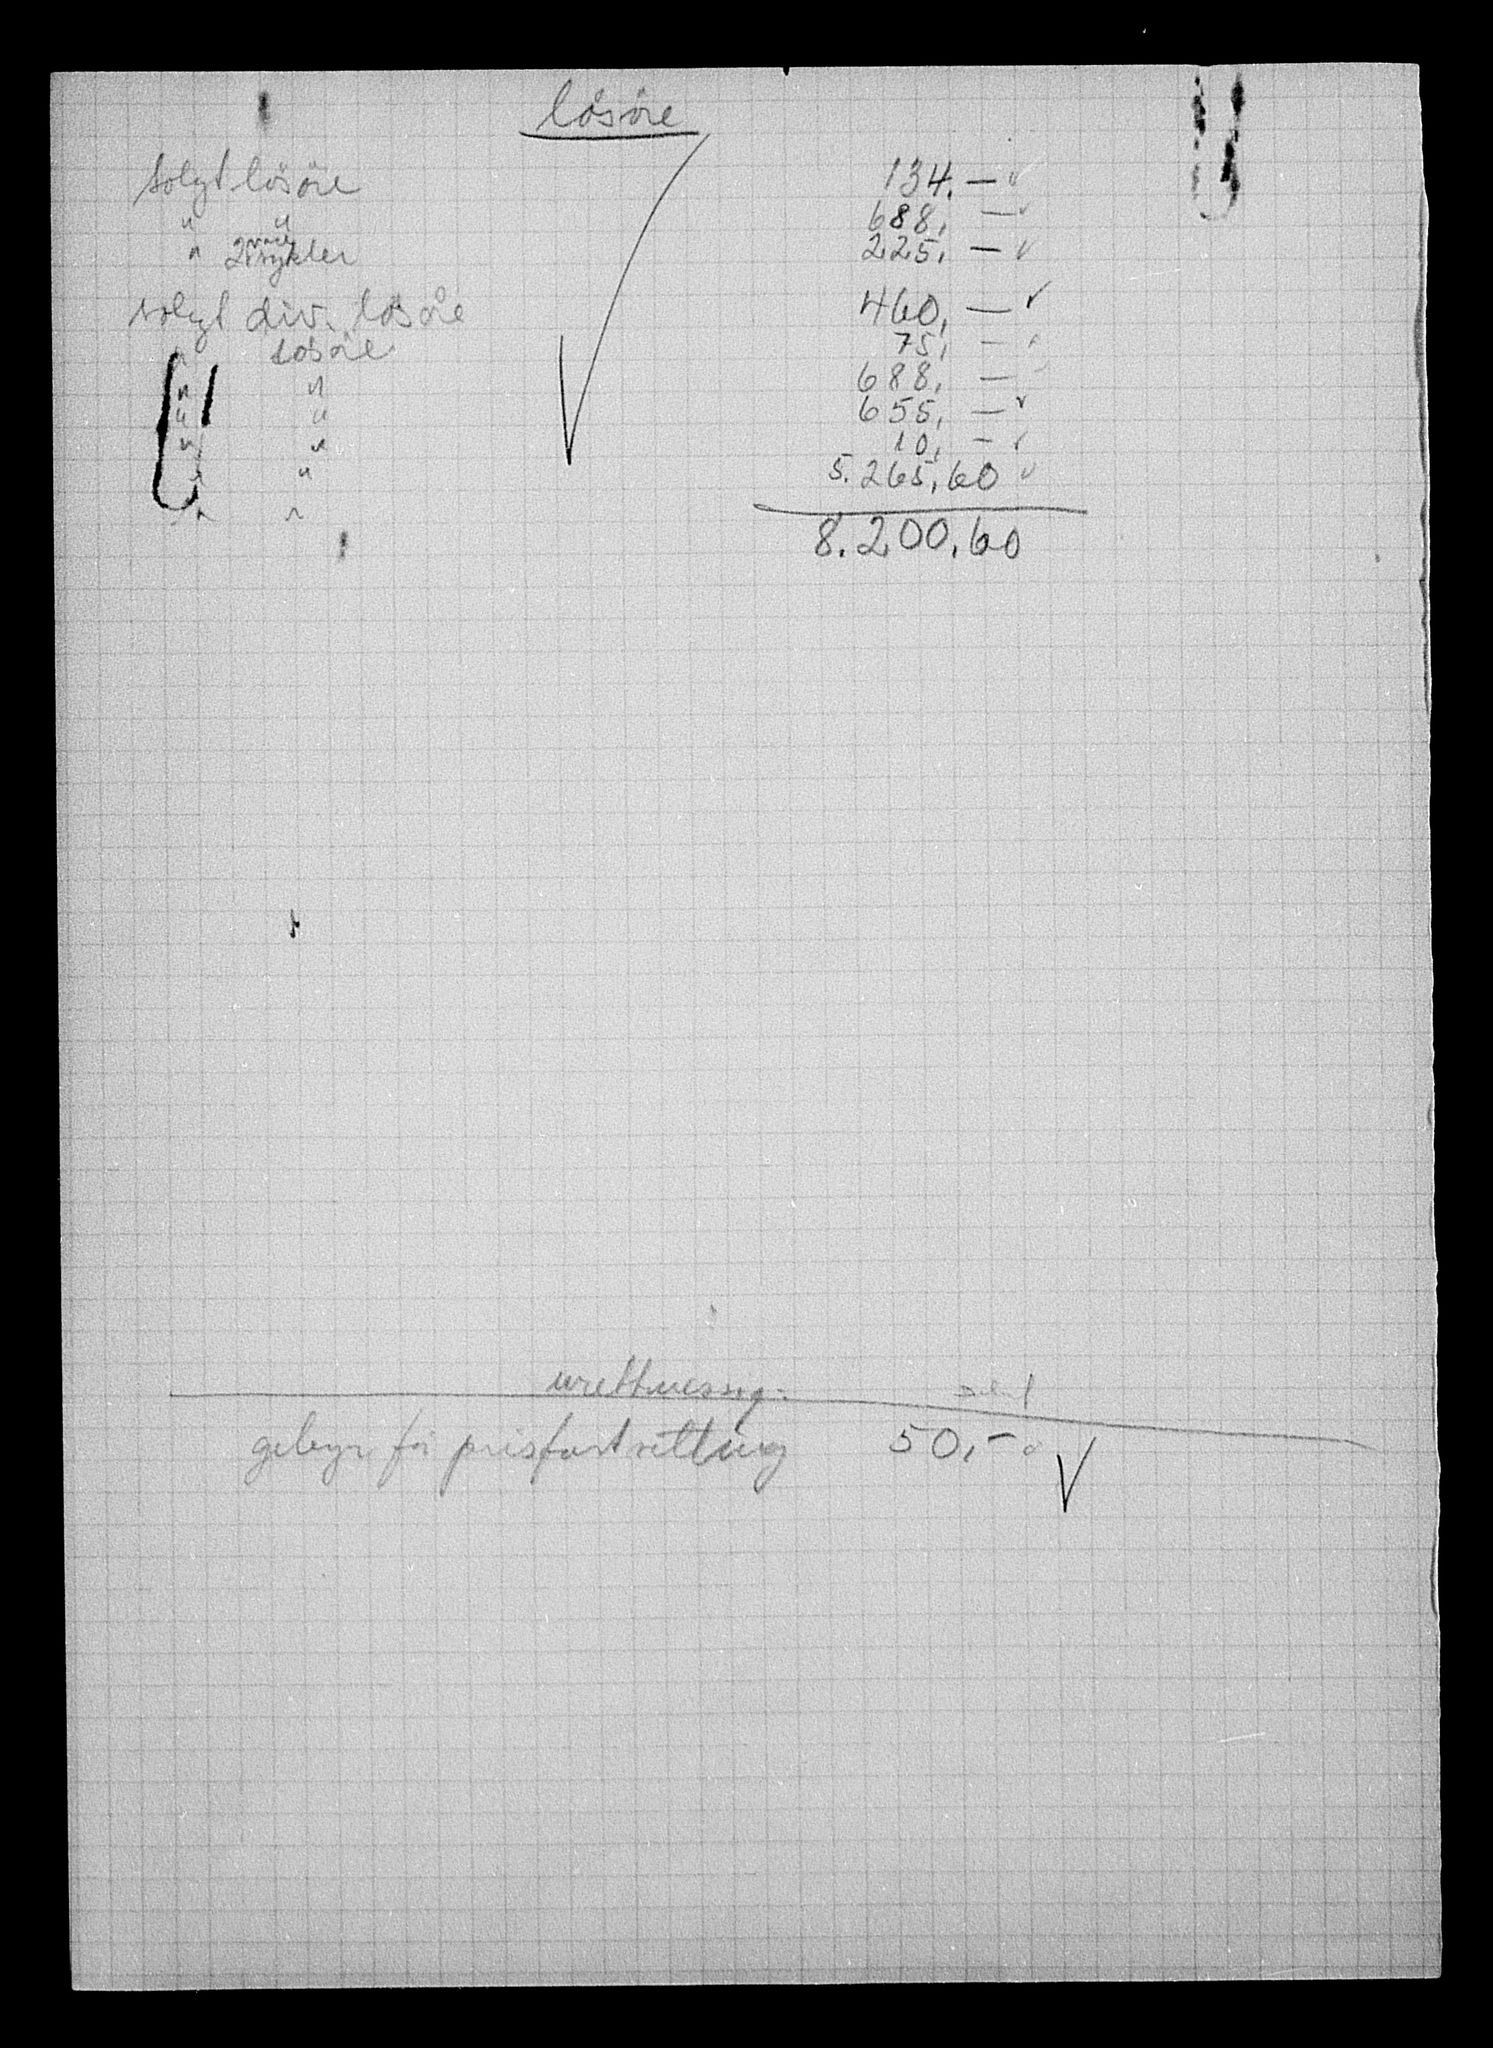 løsøre
solgt løsøre 134.—
" " 688,—
" 2 sykler 225,—
solgt div. løsøre 460,—
" løsøre 75,—
" " 688,—
" " 655,—
" " 10,—
" " 5.265,60
" "
8.200,60
urettmessig
gebyr for prisfastsetting 50,-